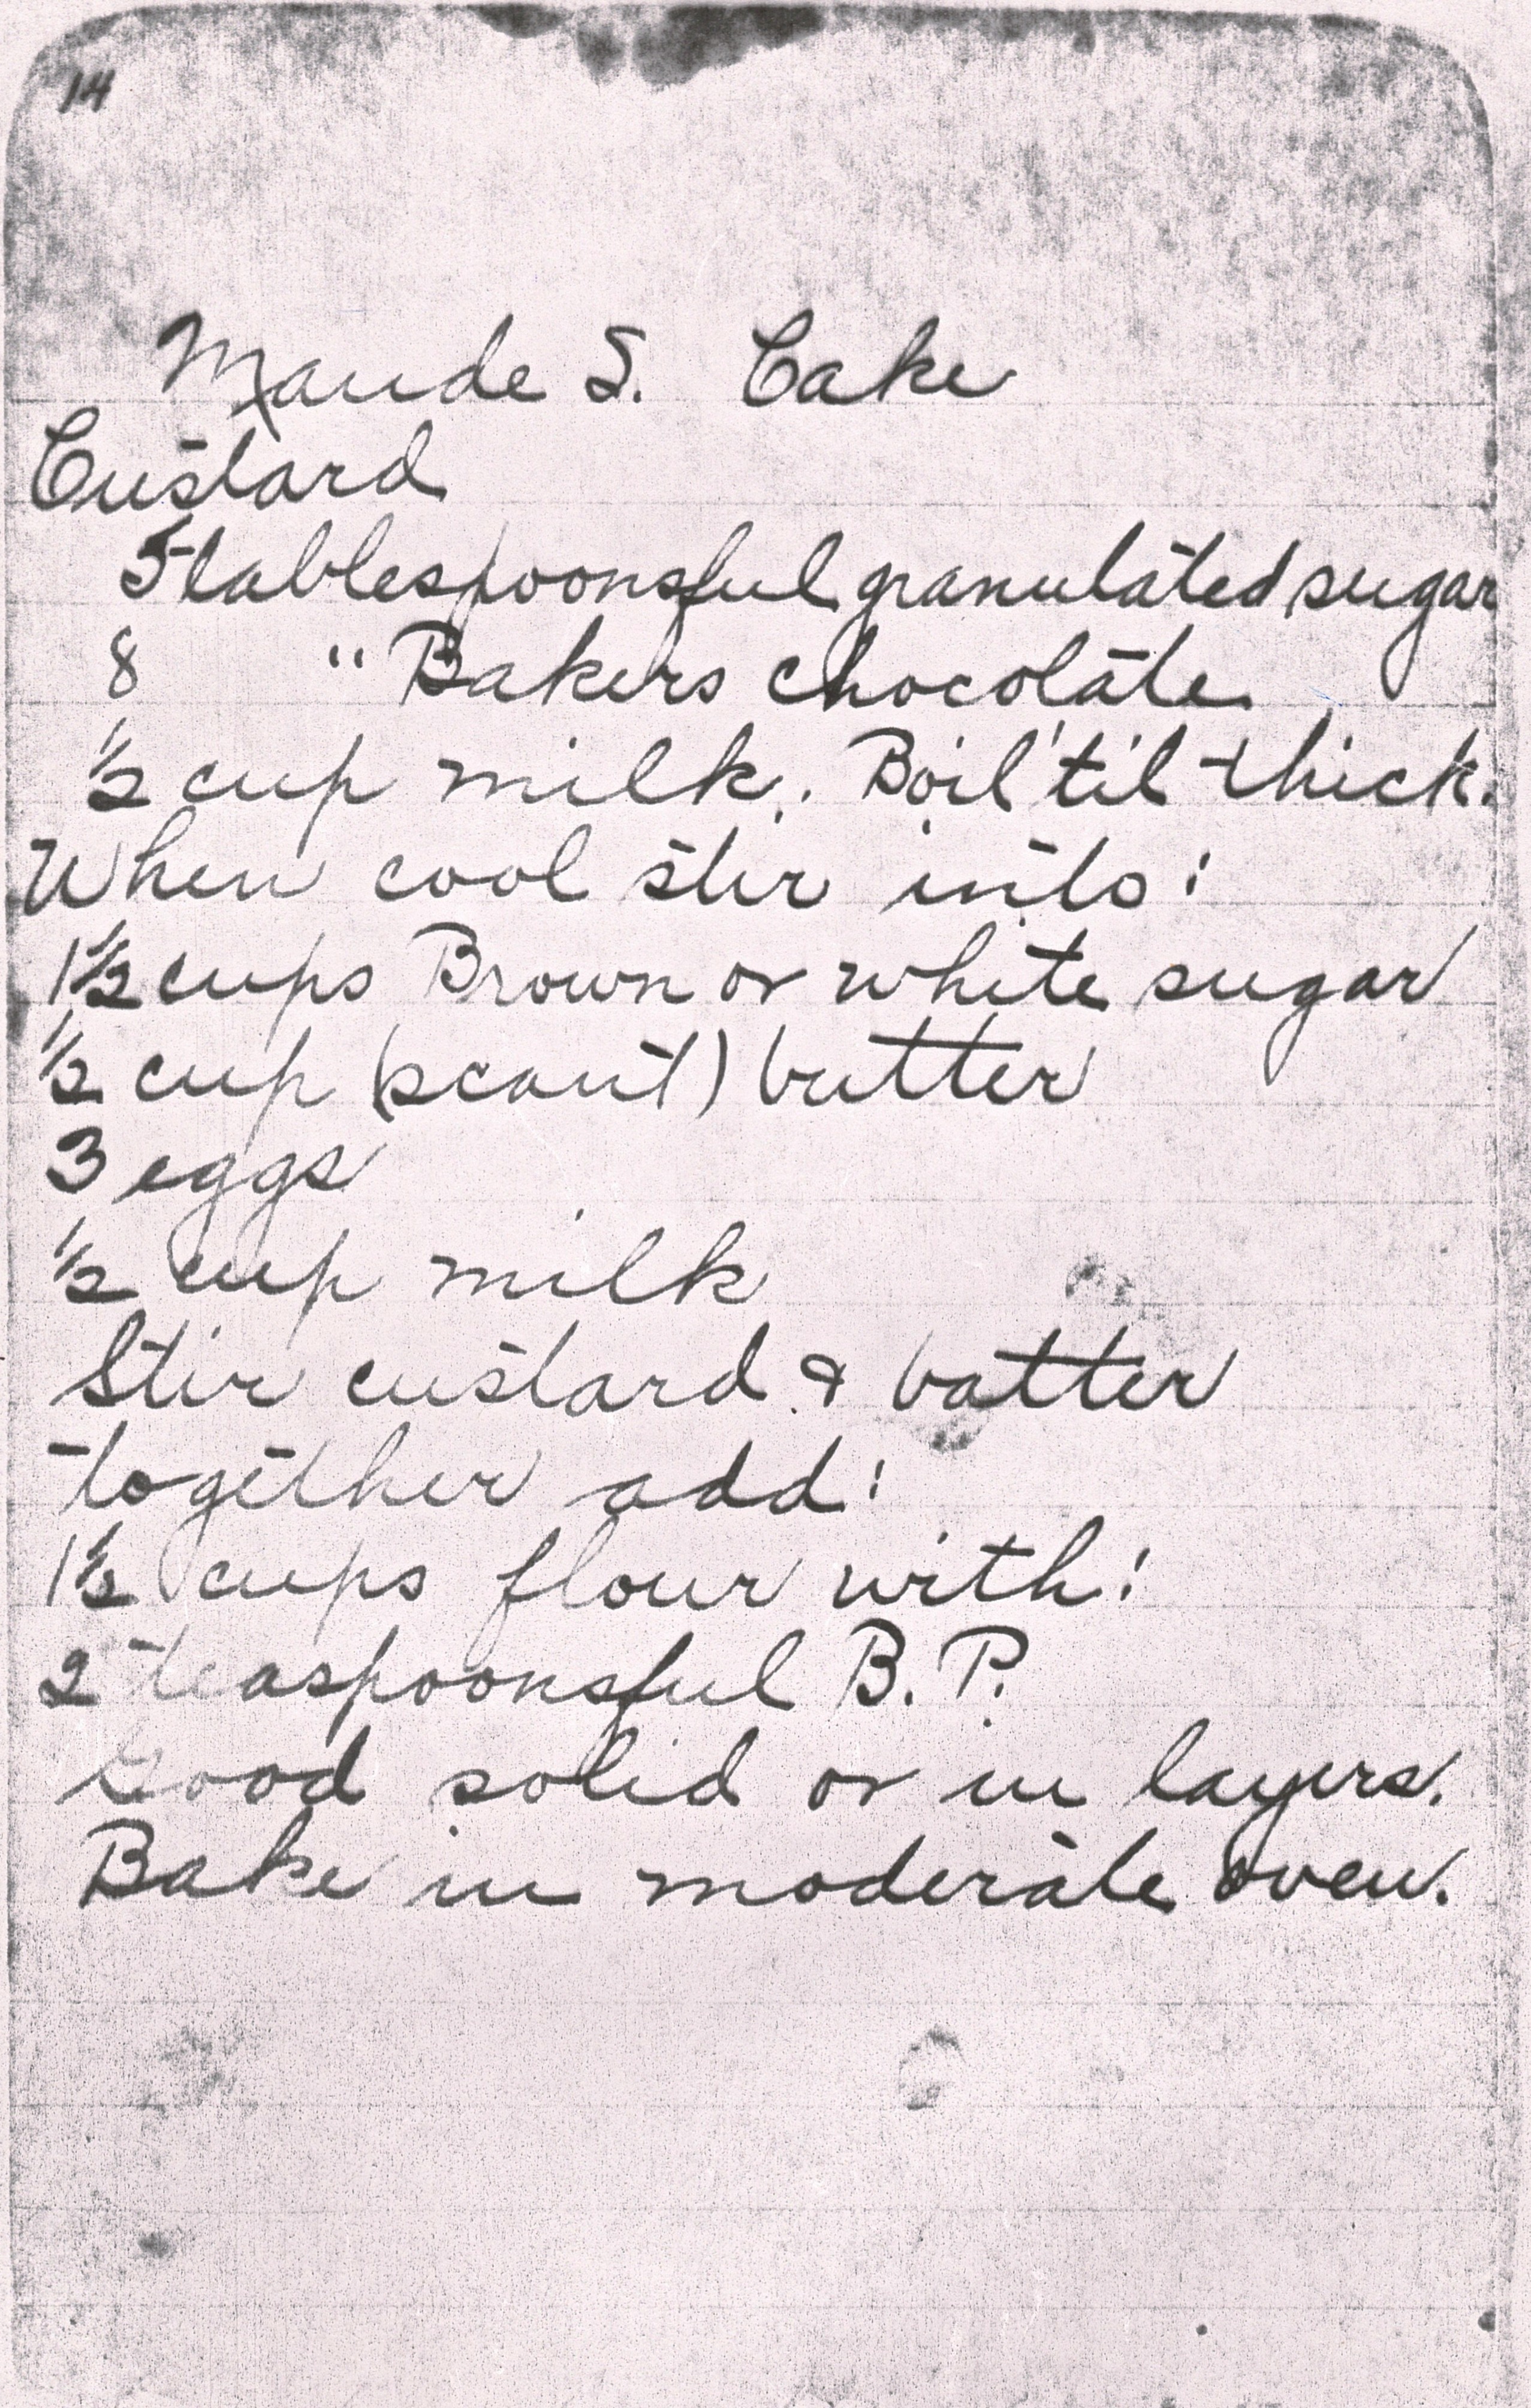 14
Maude S. Cake
Custard
5 tablespoonsful granulated sugar
8 " Bakers chocolate
1/2 cup milk. Boil 'til thick.
When cool stir into:
1 1/2 cups Brown or white sugar
1/2 cup (scant) butter
3 eggs
1/2 cup milk
Stir custard & batter
together add:
1 1/2 cups flour with:
2 teaspoonsful B.P.
Good solid or in layers.
Bake in moderate oven.